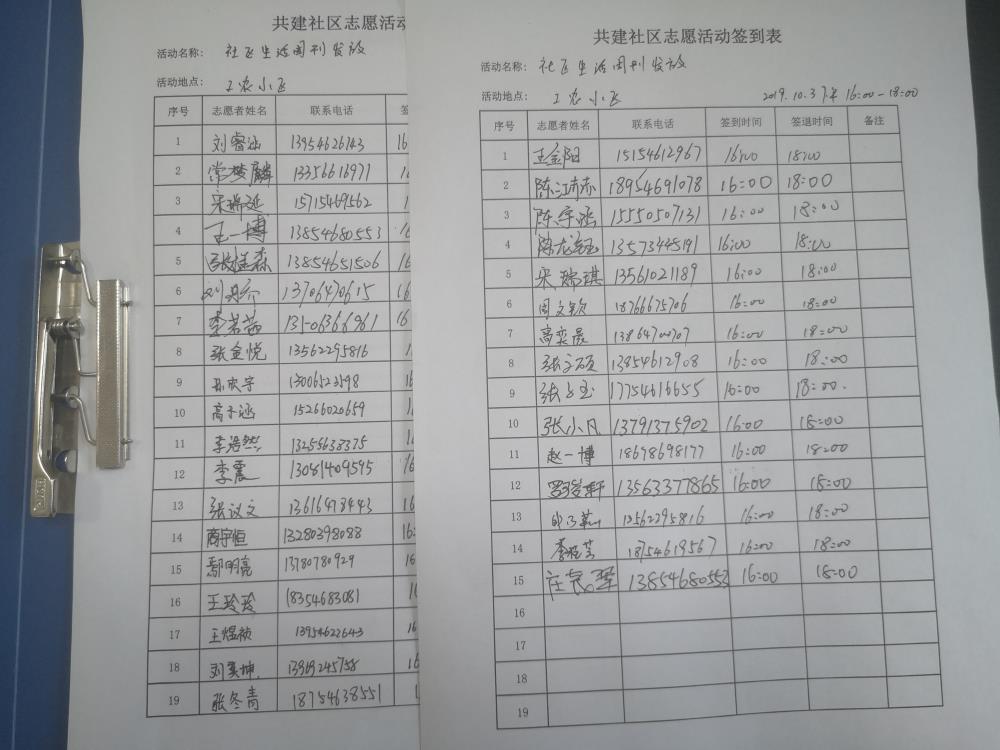 共建社区志愿活动
活动名称： 社区生活周刊发放
活动地点： 工农小区
序号 志愿者姓名 联系电话 签
1 刘睿涵 13954626743 16
2 常梦麟 13356616971 1
3 宋瑞延 15715469562 1
4 王一博 13854680553 16
5 张佳森 13854651506 16
6 刘丹介 13706470615 16
7 李若茜 16
8 张金悦 13562295816 1
9 16
10 高子涵 15266020659 1
11 李浩然 13255638375 1
12 李震 13081409595 16
13 张议文 13616473443 16
14 商宇恒 13280398088 16:
15 鄢明亮 13780780929 16
16 王玲玲 18354683081 16
17 王煜祯 13954622643 16
18 刘奕坤 13969245758 16
19 张冬青 18754638551 1
共建社区志愿活动签到表
活动名称： 社区生活周刊发放
活动地点： 工农小区 2019.10.3 下午 16:00-18:00
序号 志愿者姓名 联系电话 签到时间 签退时间 备注
1 王金阳 15154612967 16:00 18:00
2 陈江沛 18954691078 16:00 18:00
3 陈宇涵 15550507131 16:00 18:00
4 陈龙钰 13573445191 16:00 18:00
5 宋瑞琪 13561021189 16:00 18:00
6 周文钦 18766675706 16:00 18:00
7 高奕晟 13864700707 16:00 18:00
8 张子硕 13854612908 16:00 18:00
9 17754616655 16:00 18:00.
10 张小凡 13791375902 16:00 18:00
11 赵一博 18698698177 16:00 18:00
12 13563377865 16:00 18:00
13 16:00 18:00
14 18754619567 16:00 18:00
15 13854680553 16:00 18:00
16
17
18
19